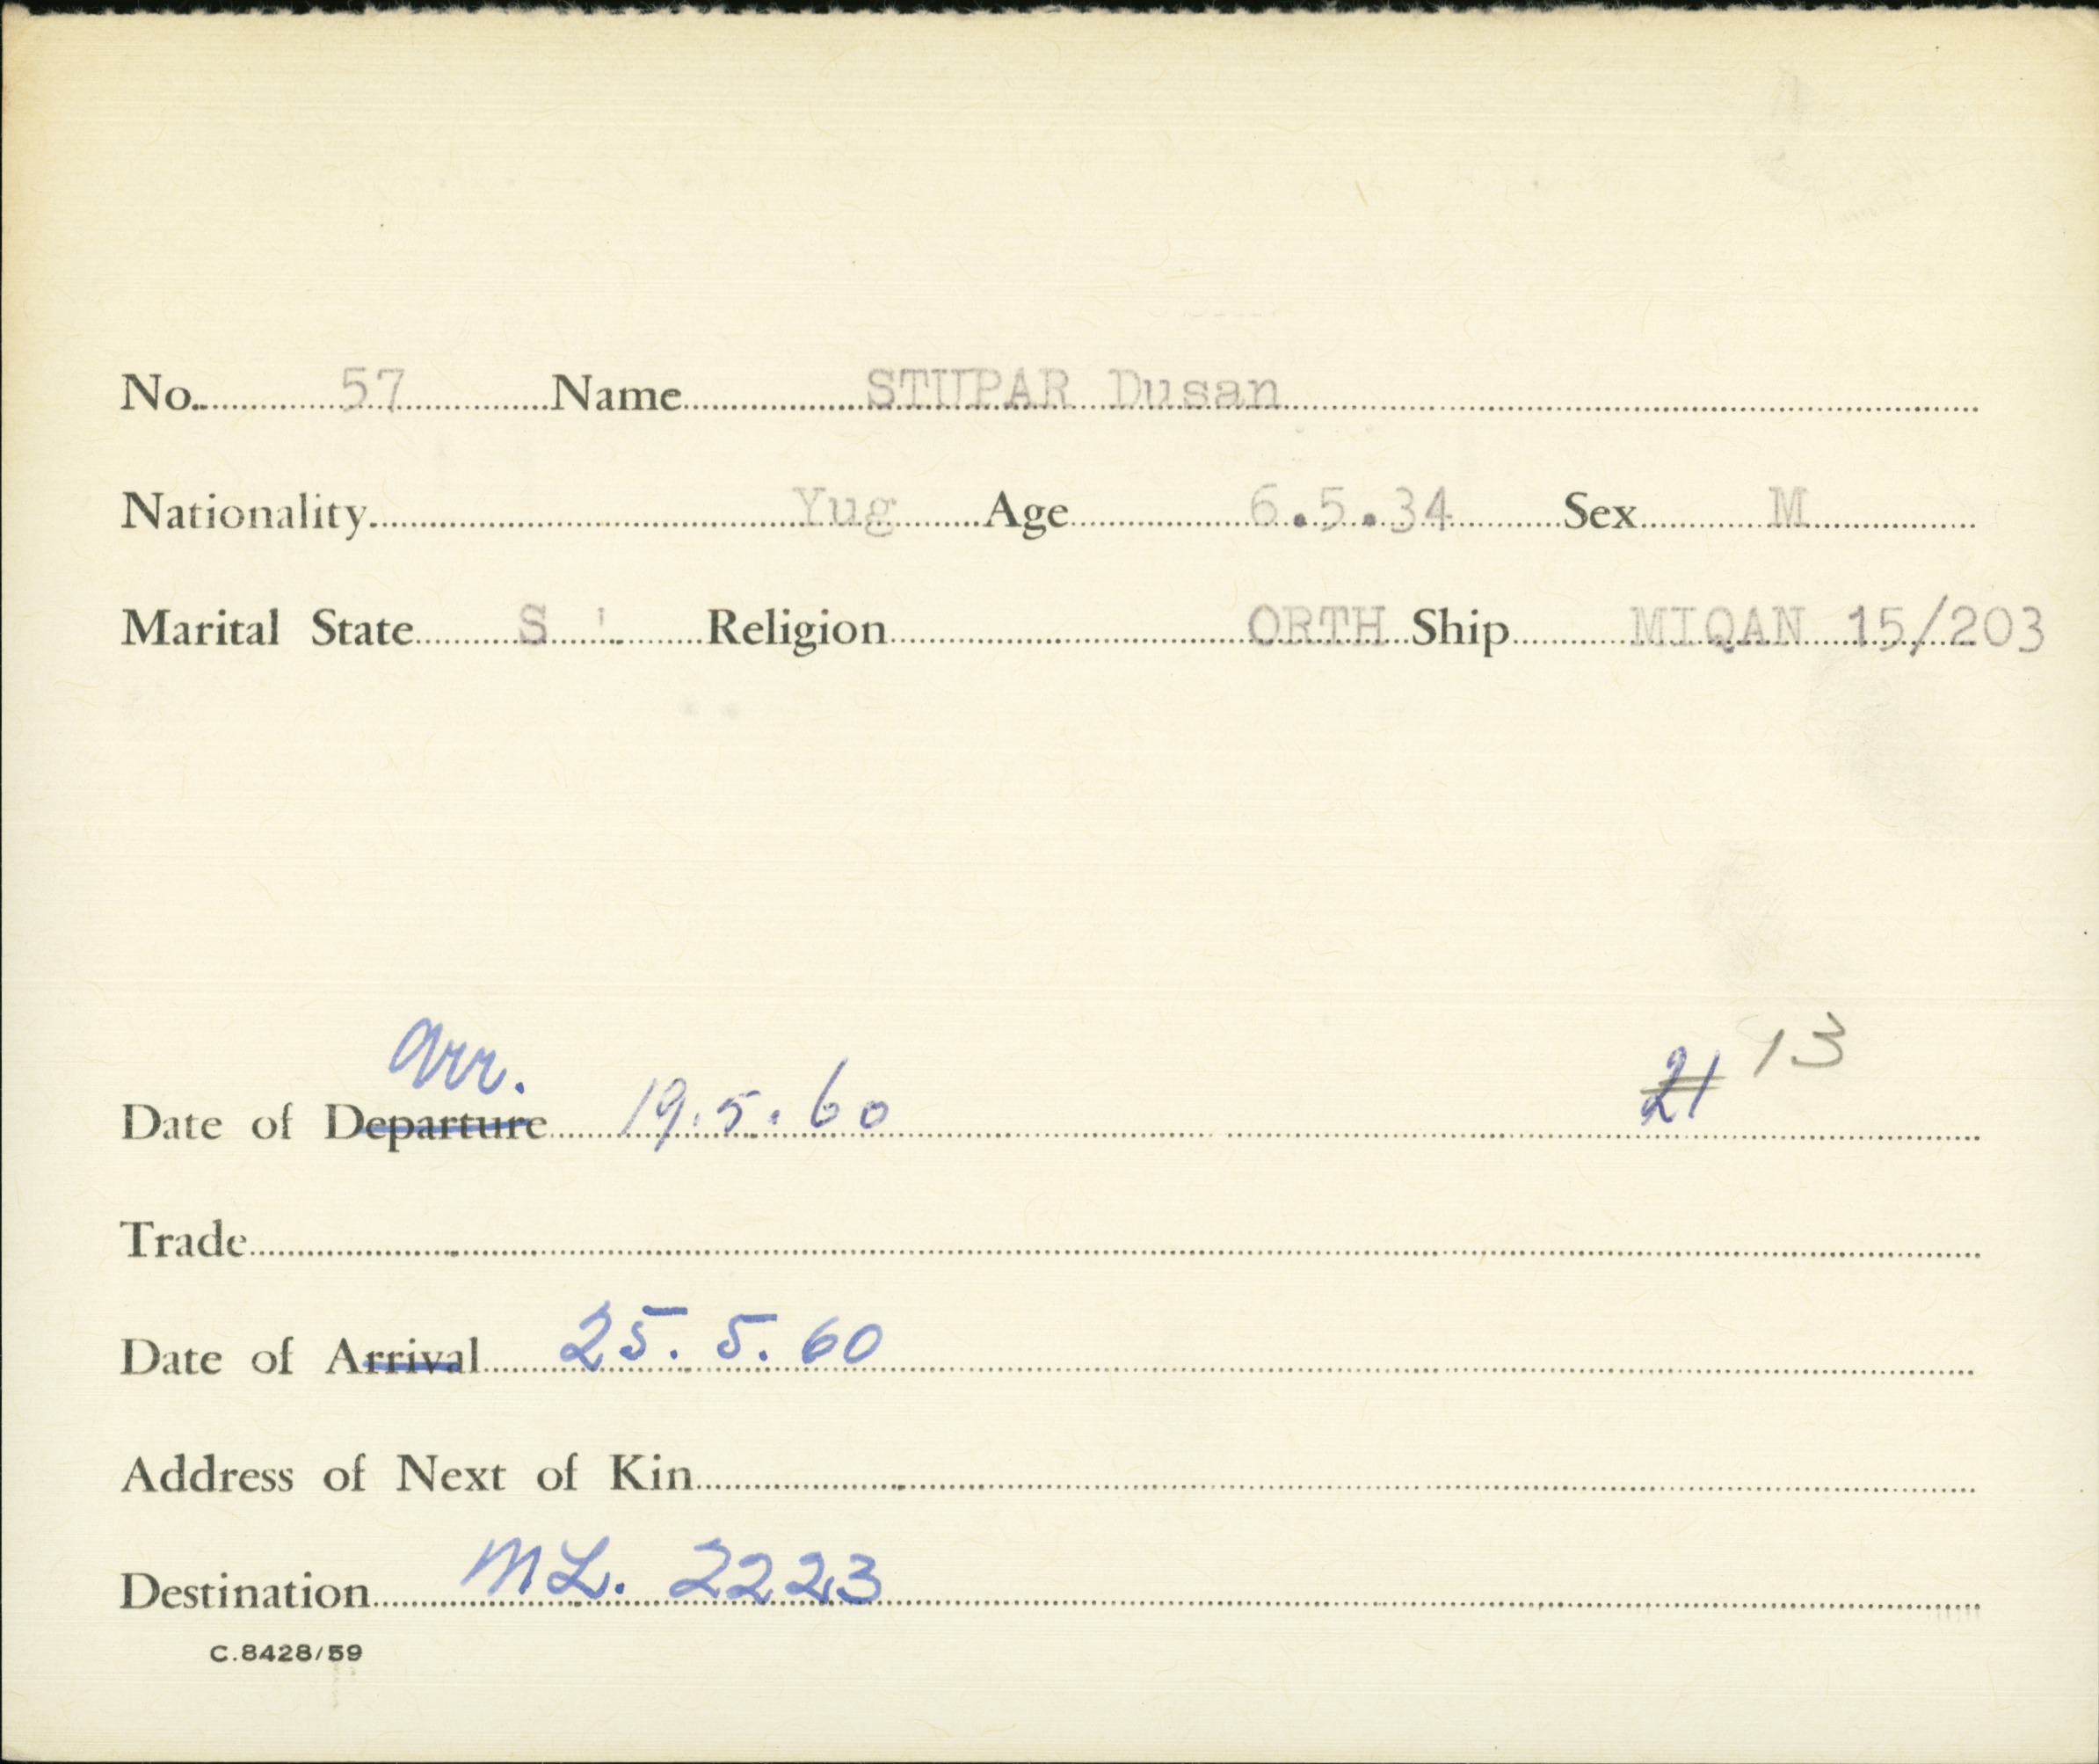 No. 57 Name STUPAR Dusan
Nationality Yug Age 6.5.34 Sex M
Marital State S Religion ORTH Ship MIQAN 15/203
arr.
13
Date of Departure 19.5.60 21
Trade
Date of Arrival 25.5.60
Address of Next of Kin
Destination ML. 2223
C.8428/59